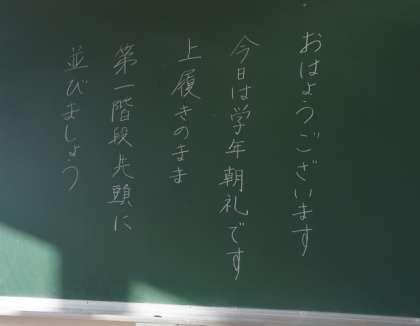 おはようございます
今日は学年朝礼です
上履きのまま
第一階段先頭に
並びましょう